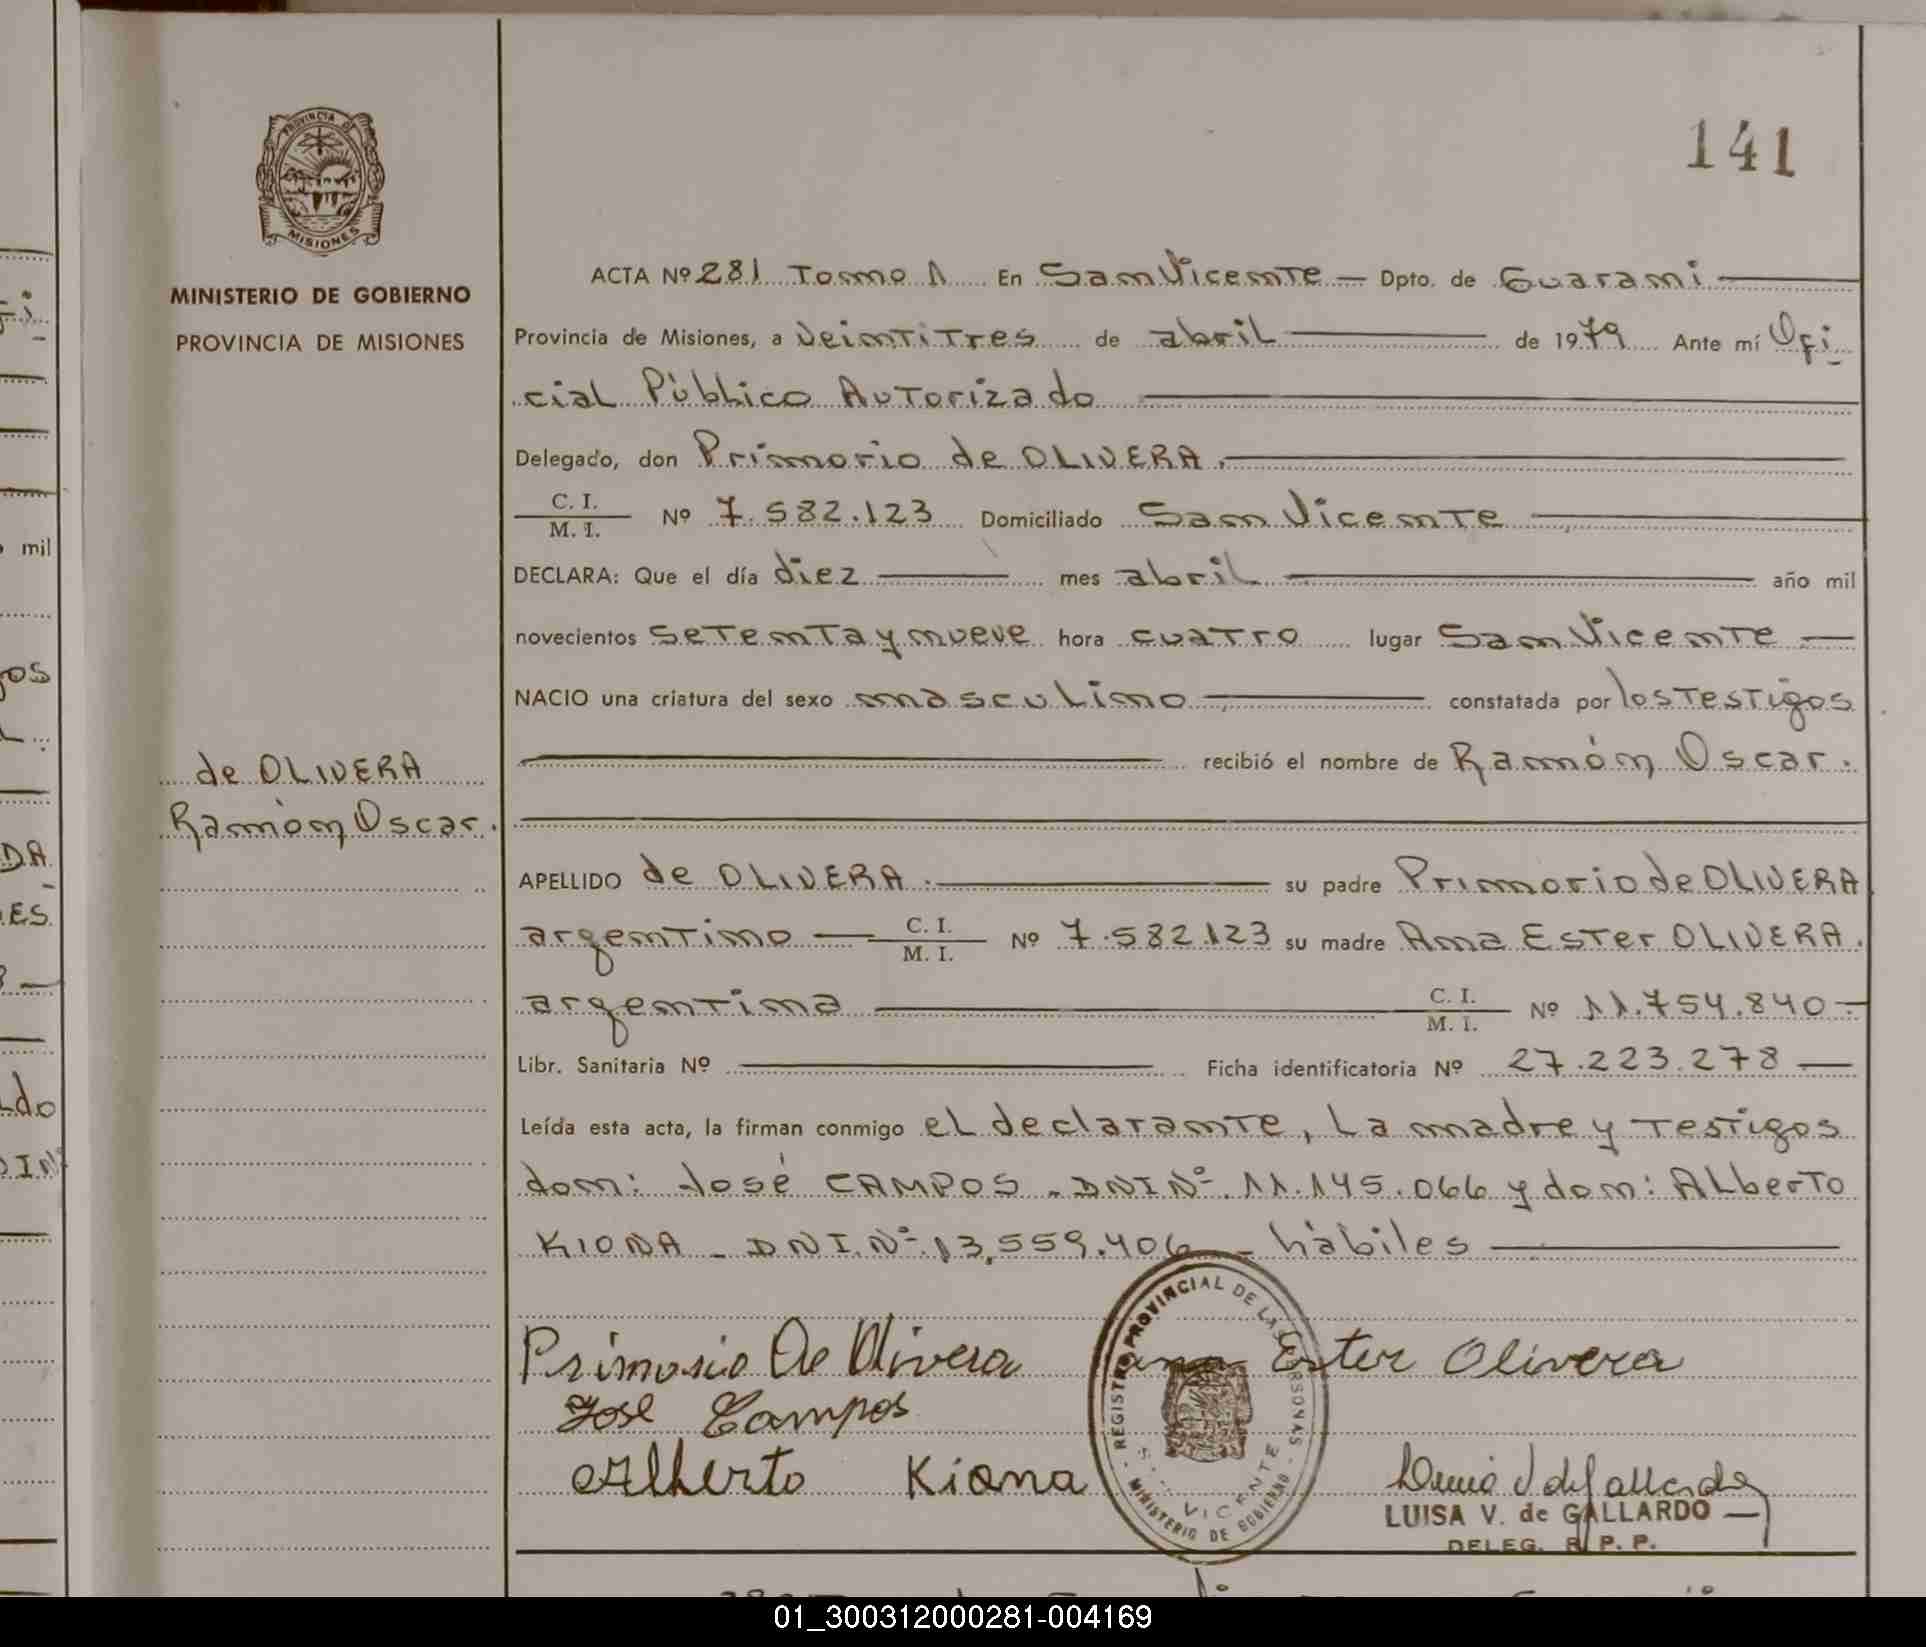 141
PROVINCIA DE
MISIONES
MINISTERIO DE GOBIERNO
PROVINCIA DE MISIONES
ACTA Nº 281 Tomo 1 En San Vicente — Dpto. de Guaraní
Provincia de Misiones, a veintitres de abril de 1979 Ante mí Ofi
cial Público Autorizado
Delegado, don Primorio de OLIVERA.
C. I.
M. I. Nº 7.582.123 Domiciliado San Vicente
DECLARA: Que el día diez mes abril año mil
novecientos setenta y nueve hora cuatro lugar San Vicente —
NACIO una criatura del sexo masculino constatada por los testigos
recibió el nombre de Ramón Oscar.
de OLIVERA
Ramón Oscar.
APELLIDO de OLIVERA. su padre Primorio de OLIVERA
argentino — C. I.
M. I. Nº 7.582.123 su madre Ana Ester OLIVERA.
argentina C. I.
M. I. Nº 11.754.840-
Libr. Sanitaria Nº Ficha identificatoria Nº 27.223.278 —
Leída esta acta, la firman conmigo el declarante, La madre y testigos
don: José CAMPOS - DNI Nº 11.145.066 y don: Alberto
KIONA - DNI. Nº 13,559.406 - hábiles
Primorio De Olivera ana Ester Olivera
José Campos
Alberto Kiona
REGISTRO PROVINCIAL DE LAS PERSONAS
VICENTE
MINISTERIO DE GOBIERNO
LUISA V. de GALLARDO
DELEG. R. P. P.
01_300312000281-004169